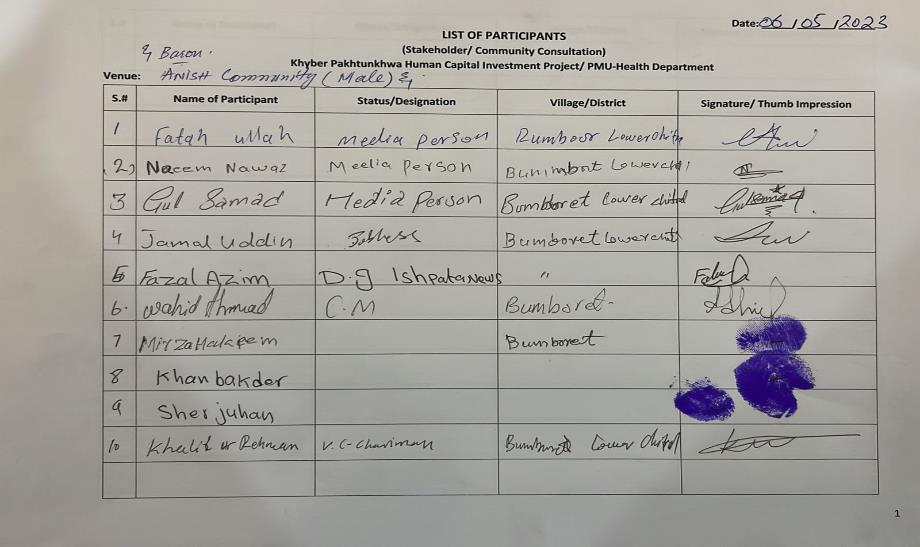 Date: 06/05/2023
LIST OF PARTICIPANTS
(Stakeholder/ Community Consultation)
& Baron.
Khyber Pakhtunkhwa Human Capital Investment Project/ PMU-Health Department
Venue: ANISH Community (Male) &
S.# Name of Participant Status/Designation Village/District Signature/ Thumb Impression
1 Fatah ullah Media person Rumboor Lower chitral
2) Naeem Nawaz Media Person Bunimbort Lower chi
3 Gul Samad Media Person Bomboret Lower chitral Gul Samad
4 Jamal Uddin Bumboret Lower chit
5 Fazal Azim D.g Ishpata News "
6. Wahid Ahmad C.M Bumboret
7 Mirza Hakeem Bumboret
8 Khan bakder
9 Sher juhan
10 Khalil ur Rehman V.C-Chairman Bumburat Lower chitral
1